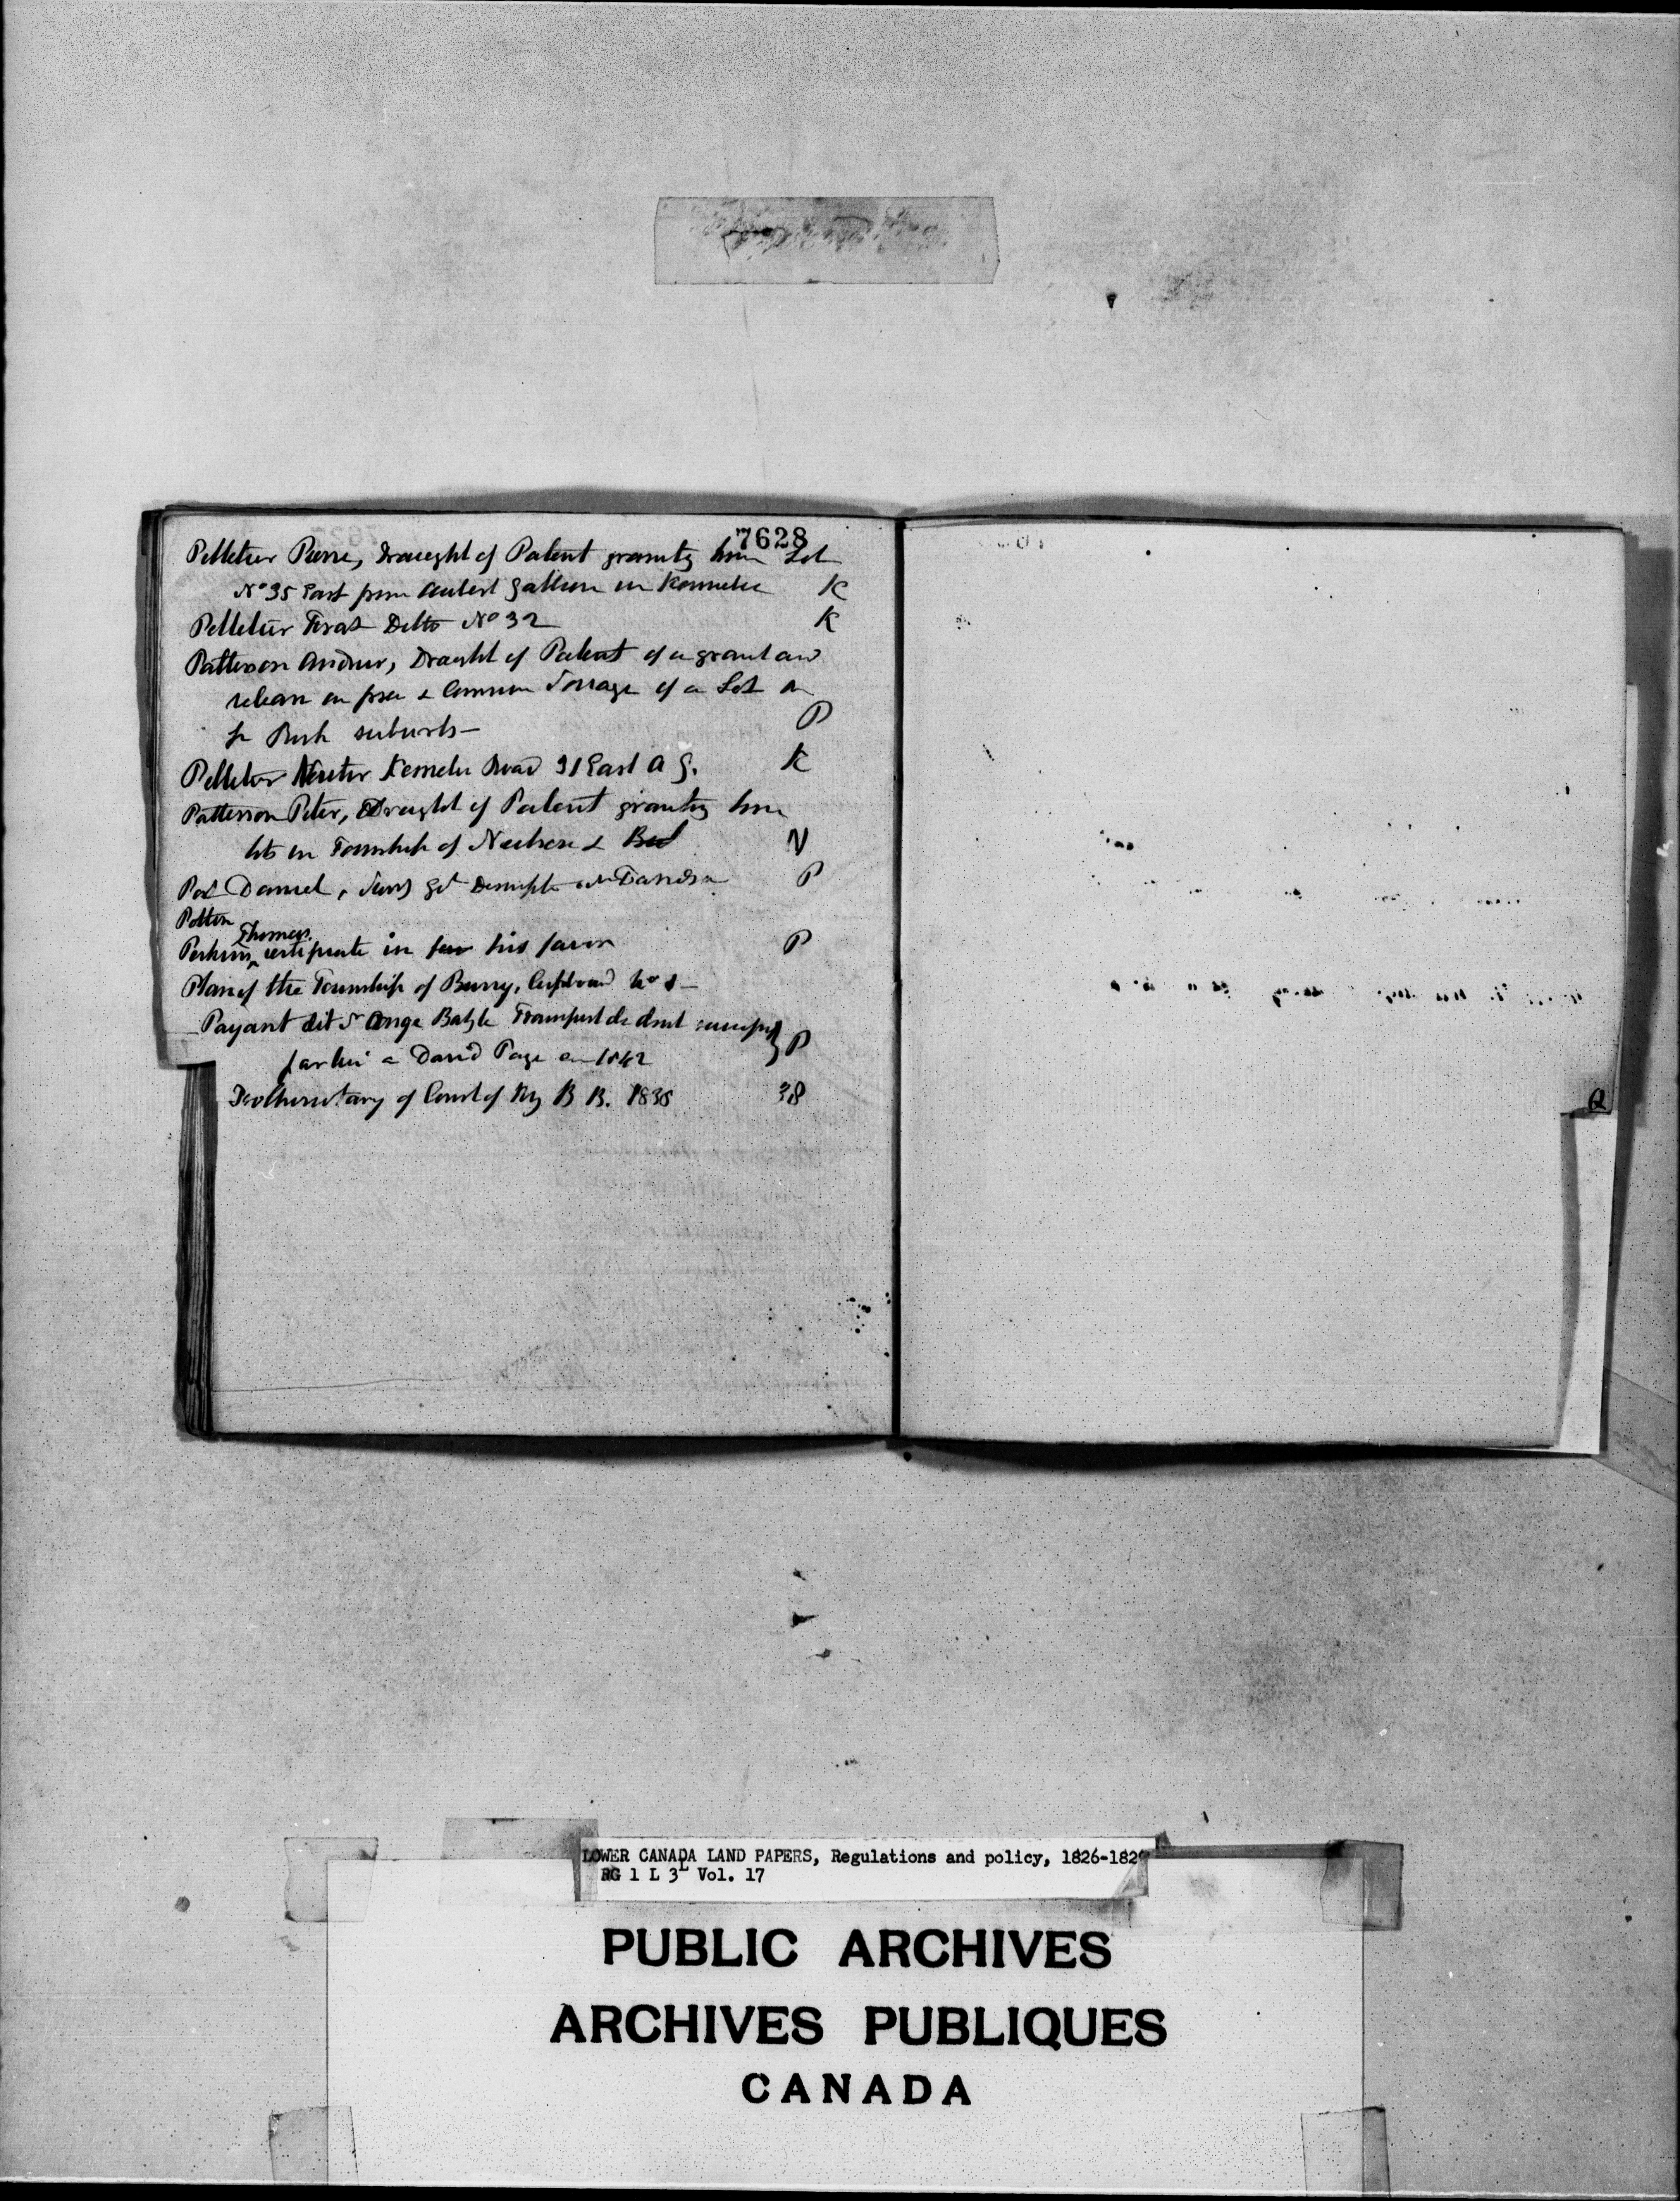 7628
Pelletier Pierre, draught of Patent granting him Lot
No 35 East from Aubert Gallion in Kennebec K
Pelletier Ferat Ditto No 32 K
Patterson Andrew, Draught of Patent of a grant and
release in free & Common Soccage of a Lot in
St Roch suburbs - P
Pelletier Kennebec Road 31 East A G. K
Patterson Peter, Draught of Patent granting him
lots in Township of & N
Daniel, P
Potton
Thomas
Perkins certificate in his favor P
Plan of the Township of Bury, Cupboard No 1 -
Payant dit St Ange Batste Transport de droit
par lui a David Page en 1842 P
Prothonotary of Court of Kg B R. 1838 38
Q
LOWER CANADA LAND PAPERS, Regulations and policy, 1826-182
RG 1 L 3L Vol. 17
PUBLIC ARCHIVES
ARCHIVES PUBLIQUES
CANADA